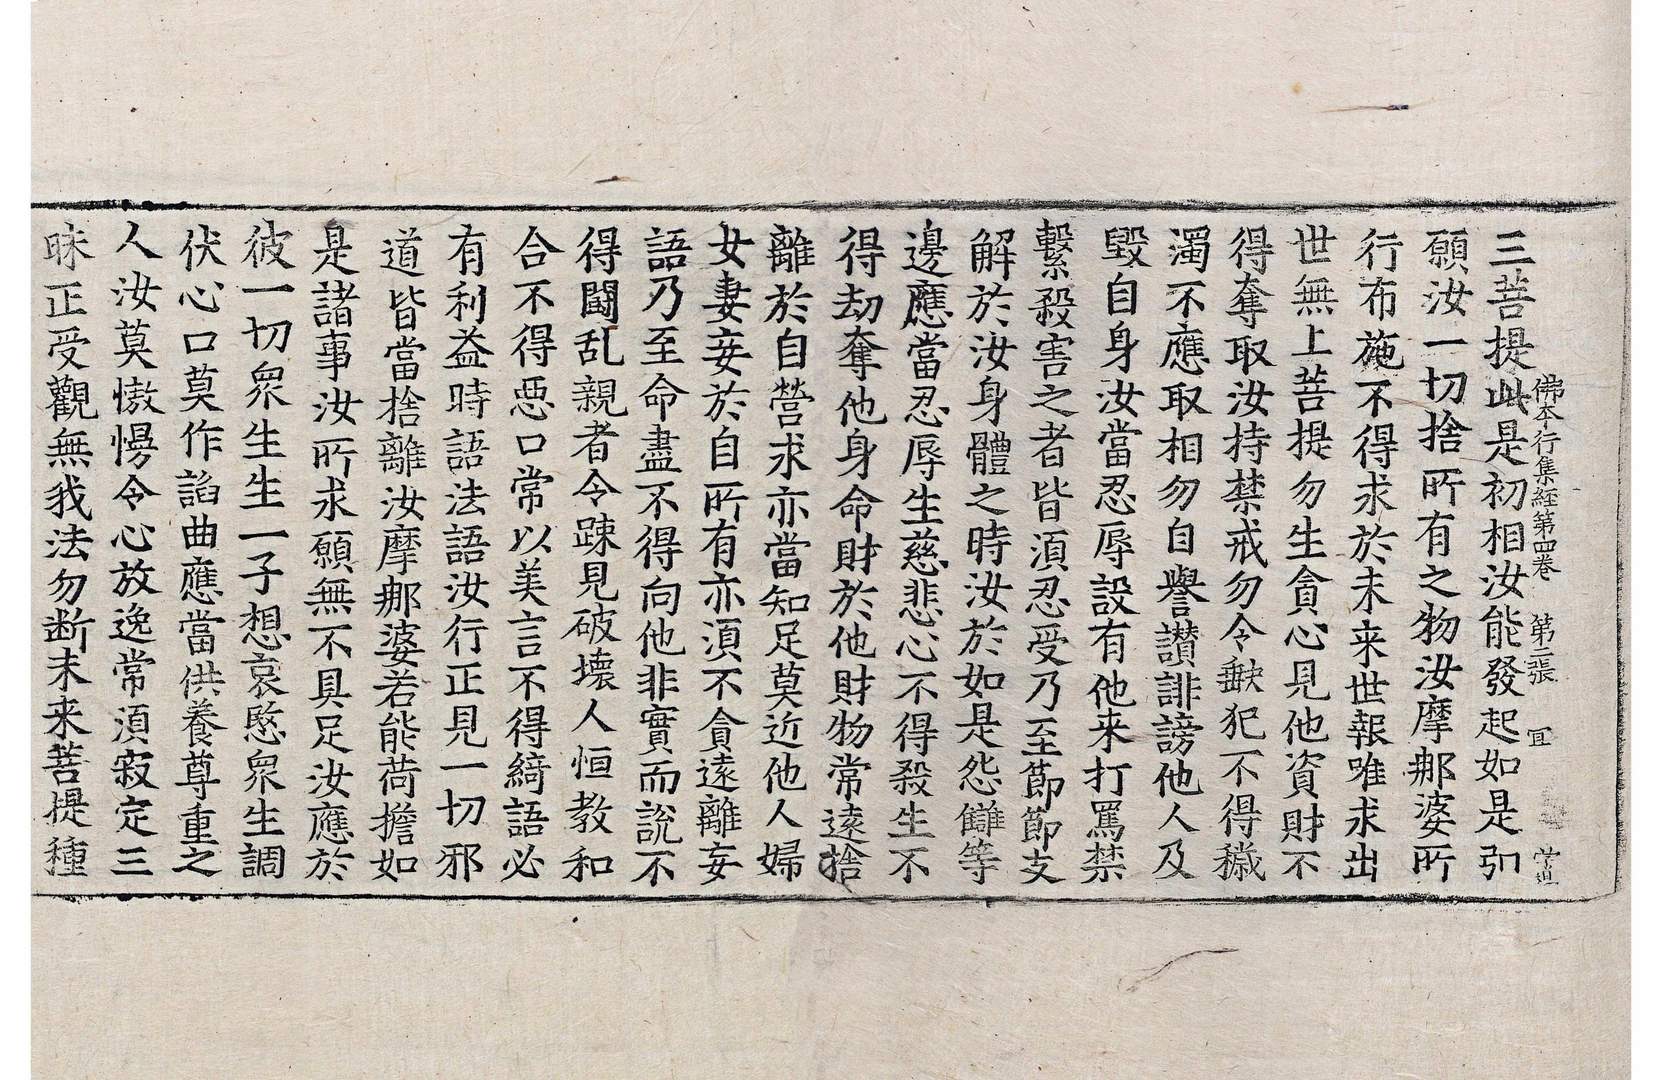 佛本行集経第四卷 第二張 㝉
三菩提此是初相汝能發起如是弘
願汝一切捨所有之物汝摩那婆所
行布施不得求於未来世報唯求出
世無上菩提勿生貪心見他資財不
得奪取汝持禁戒勿令缺犯不得穢
濁不應取相勿自譽讃誹謗他人及
毀自身汝當忍辱設有他来打罵禁
繫殺害之者皆湏忍受乃至節節支
解於汝身體之時汝於如是怨讎等
邊應當忍辱生慈悲心不得殺生不
得劫奪他身命財於他財物常遠捨
離於自營求亦當知足莫近他人婦
女妻妾於自所有亦湏不貪遠離妄
語乃至命盡不得向他非實而說不
得鬪乱親者令踈見破壊人恒教和
合不得惡口常以美言不得綺語必
有利益時語法語汝行正見一切邪
道皆當捨離汝摩那婆若能荷擔如
是諸事汝所求願無不具足汝應於
彼一切衆生生一子想哀愍衆生調
伏心口莫作諂曲應當供養尊重之
人汝莫憿慢令心放逸常湏寂定三
昧正受觀無我法勿断未来菩提種